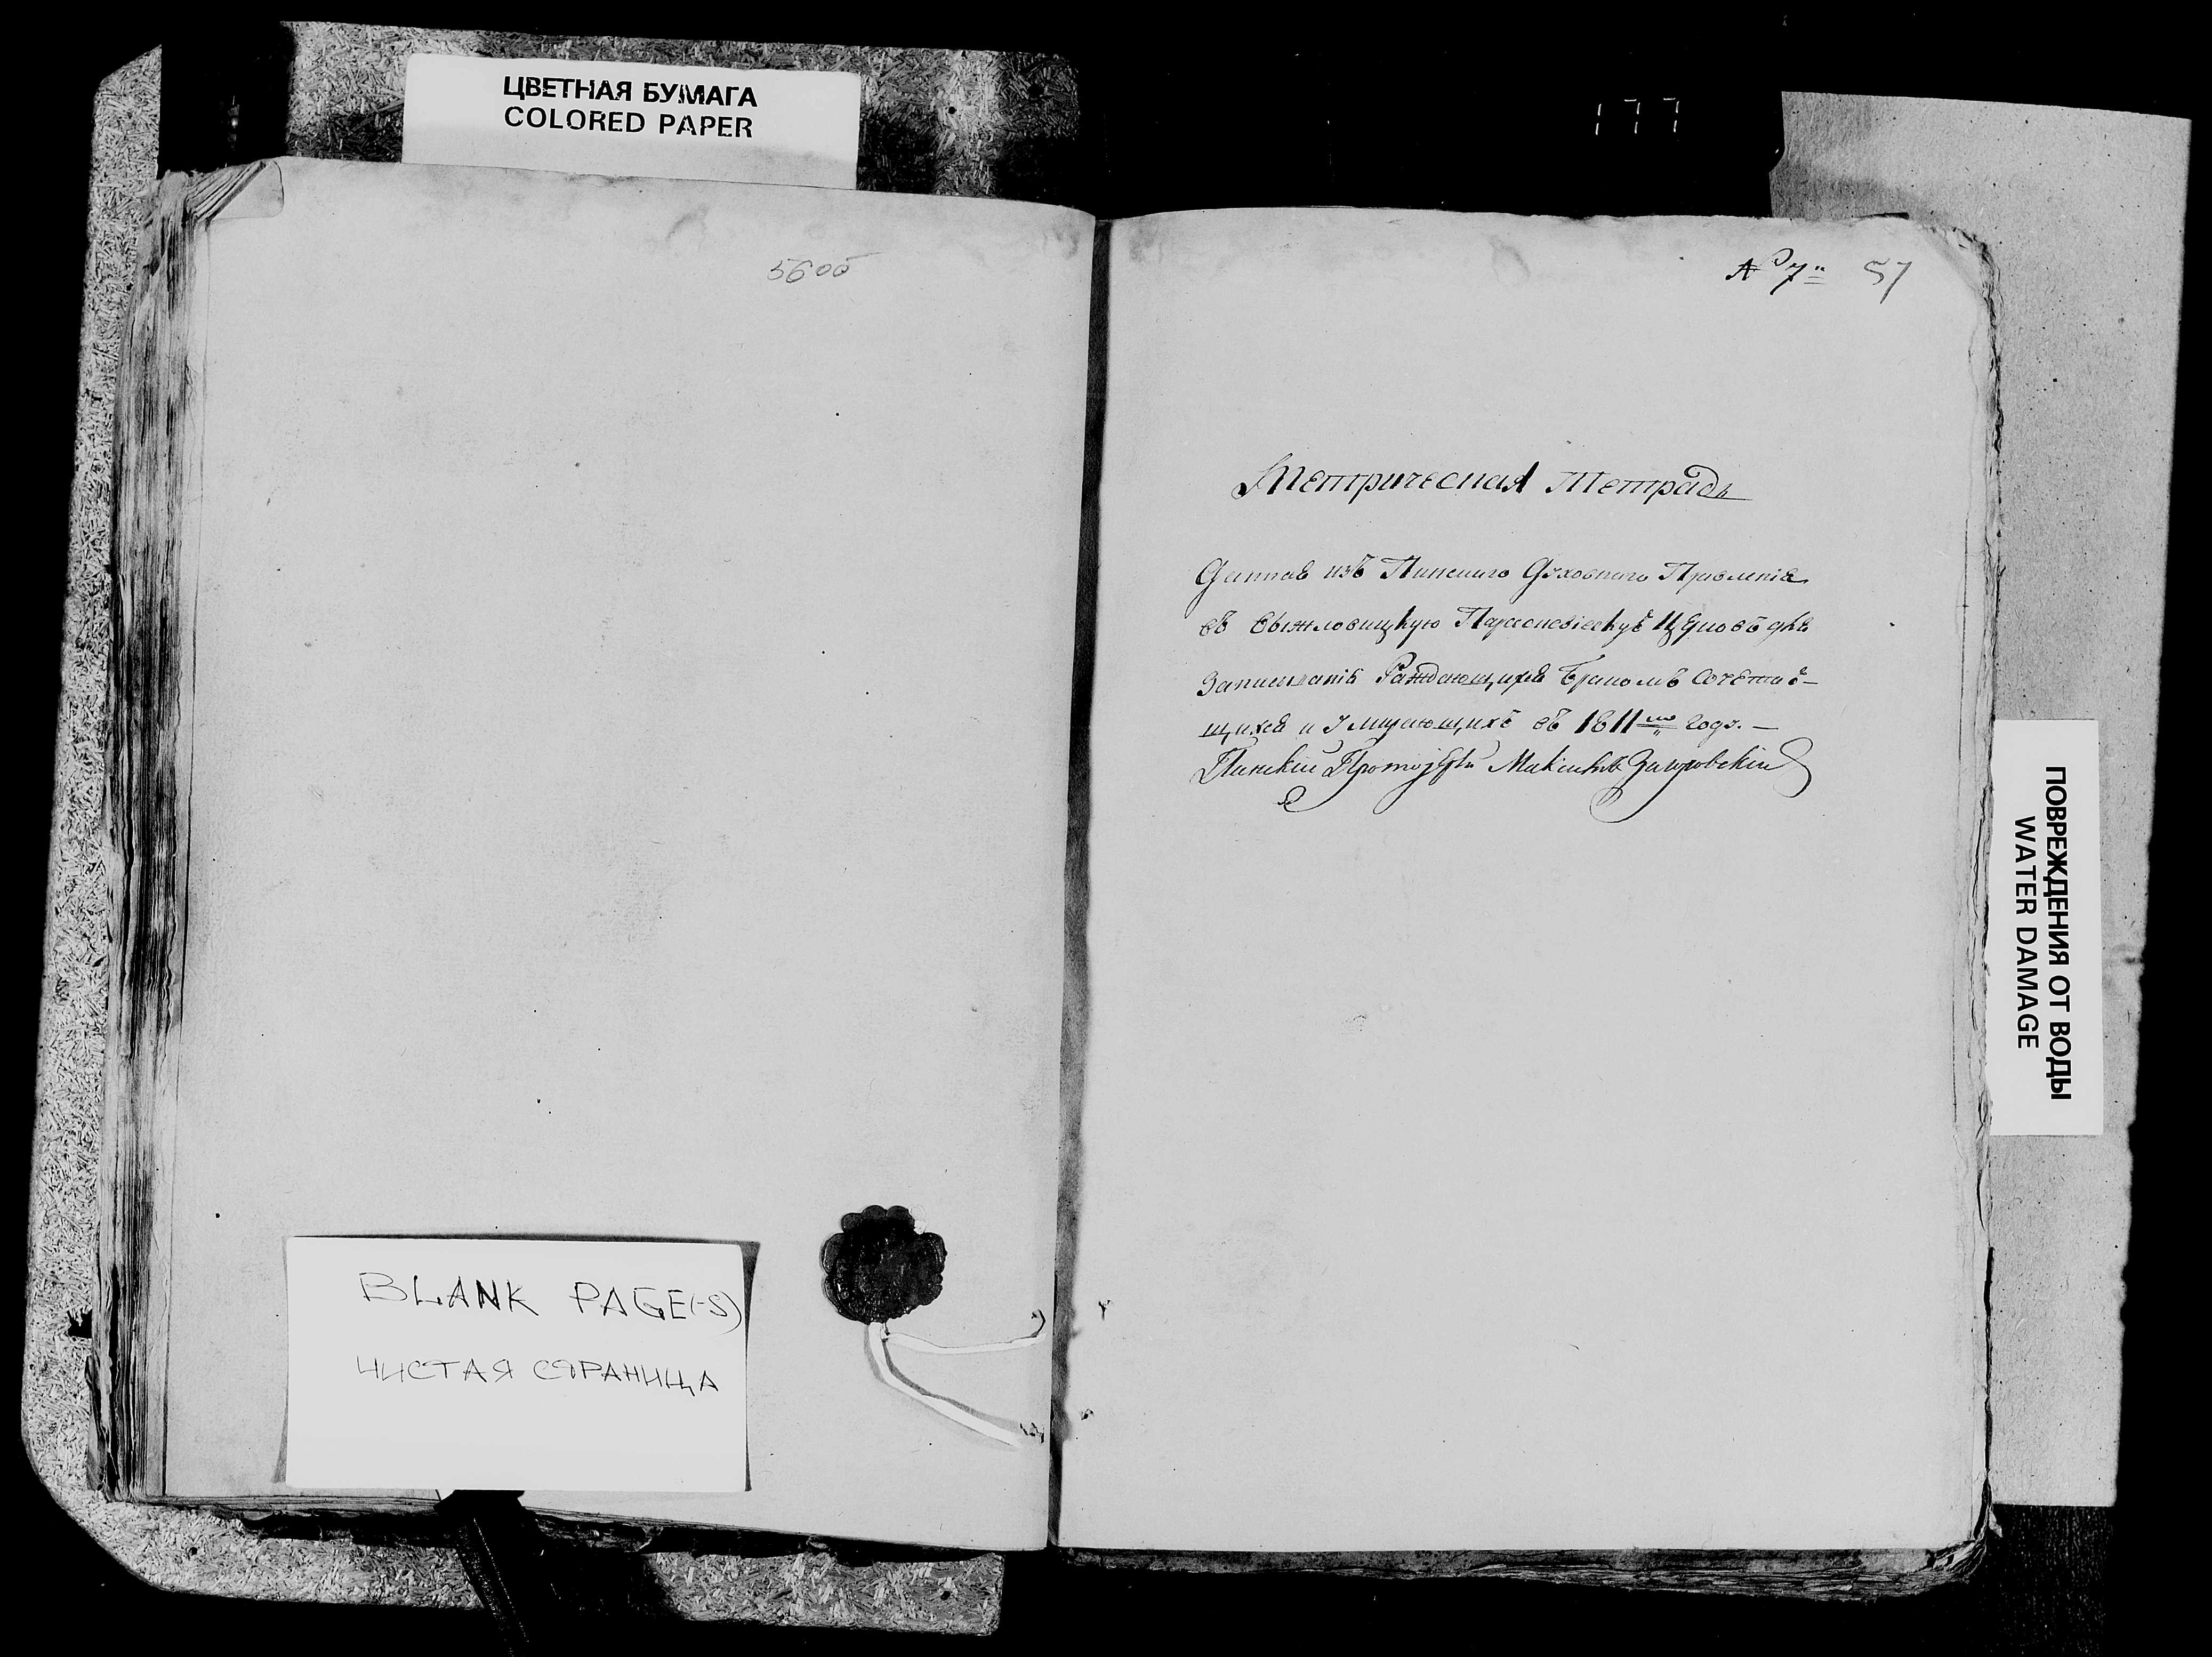 ЦВЕТНАЯ БУМАГА
COLORED PAPER
177
56об
№ 7 57
Метрическая Тетрадь
Данная изъ Пинскаго Духовнаго Правленія
въ Выжловицкую Параскевіевскую Церковь для
Записыванія Раждающихся Бракомъ Сочетаю-
щихся и Умирающихъ въ 1811мъ годѵ.—
Пинскій Протоіерей
BLANK PAGE(-S)
ЧИСТАЯ СТРАНИЦА
ПОВРЕЖДЕНИЯ ОТ ВОДЫ
WATER DAMAGE